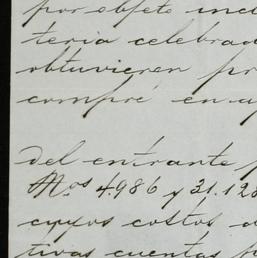 por objeto inclu
teria celebrad
obtuvieren pr
compré en
del entrante
Nos 4.986 y 31.128
cuyos costos
tivas cuentas